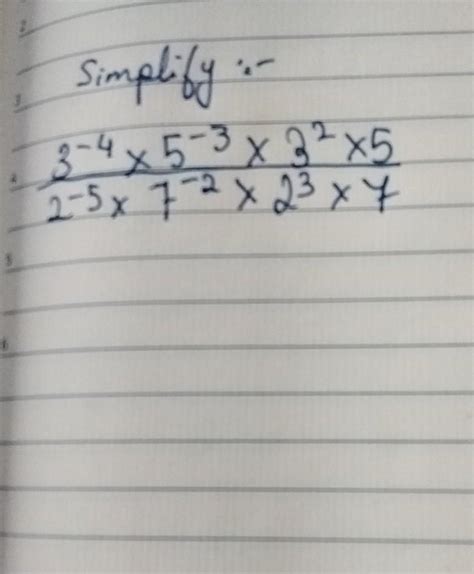 Simplify :-
3⁻⁴ × 5⁻³ × 3² × 5
2⁻⁵ × 7⁻² × 2³ × 7